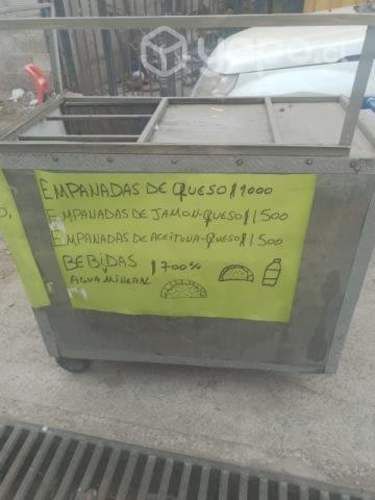 EMPANADAS DE QUESO $1000
EMPANADAS DE JAMON-QUESO $1500
EMPANADAS DE ACEITUNA-QUESO $1.500
BEBIDAS
$700
AGUA MINERAL